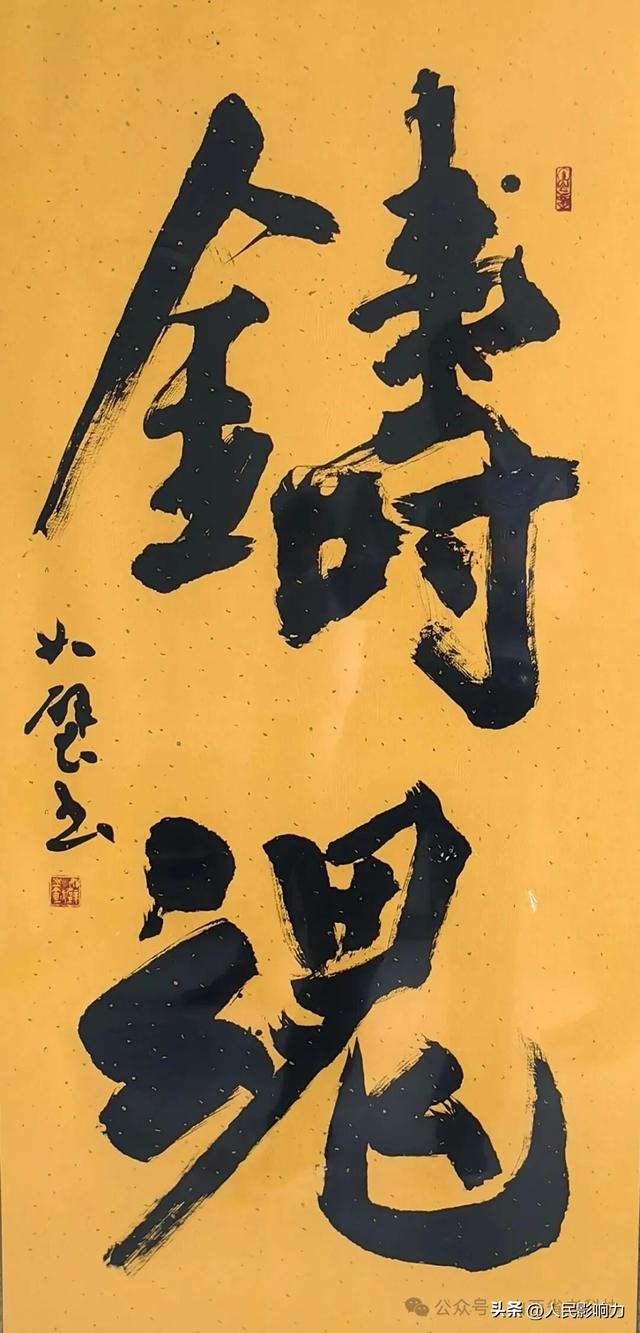 鑄魂
如璧书
公众号
头条 @人民影响力